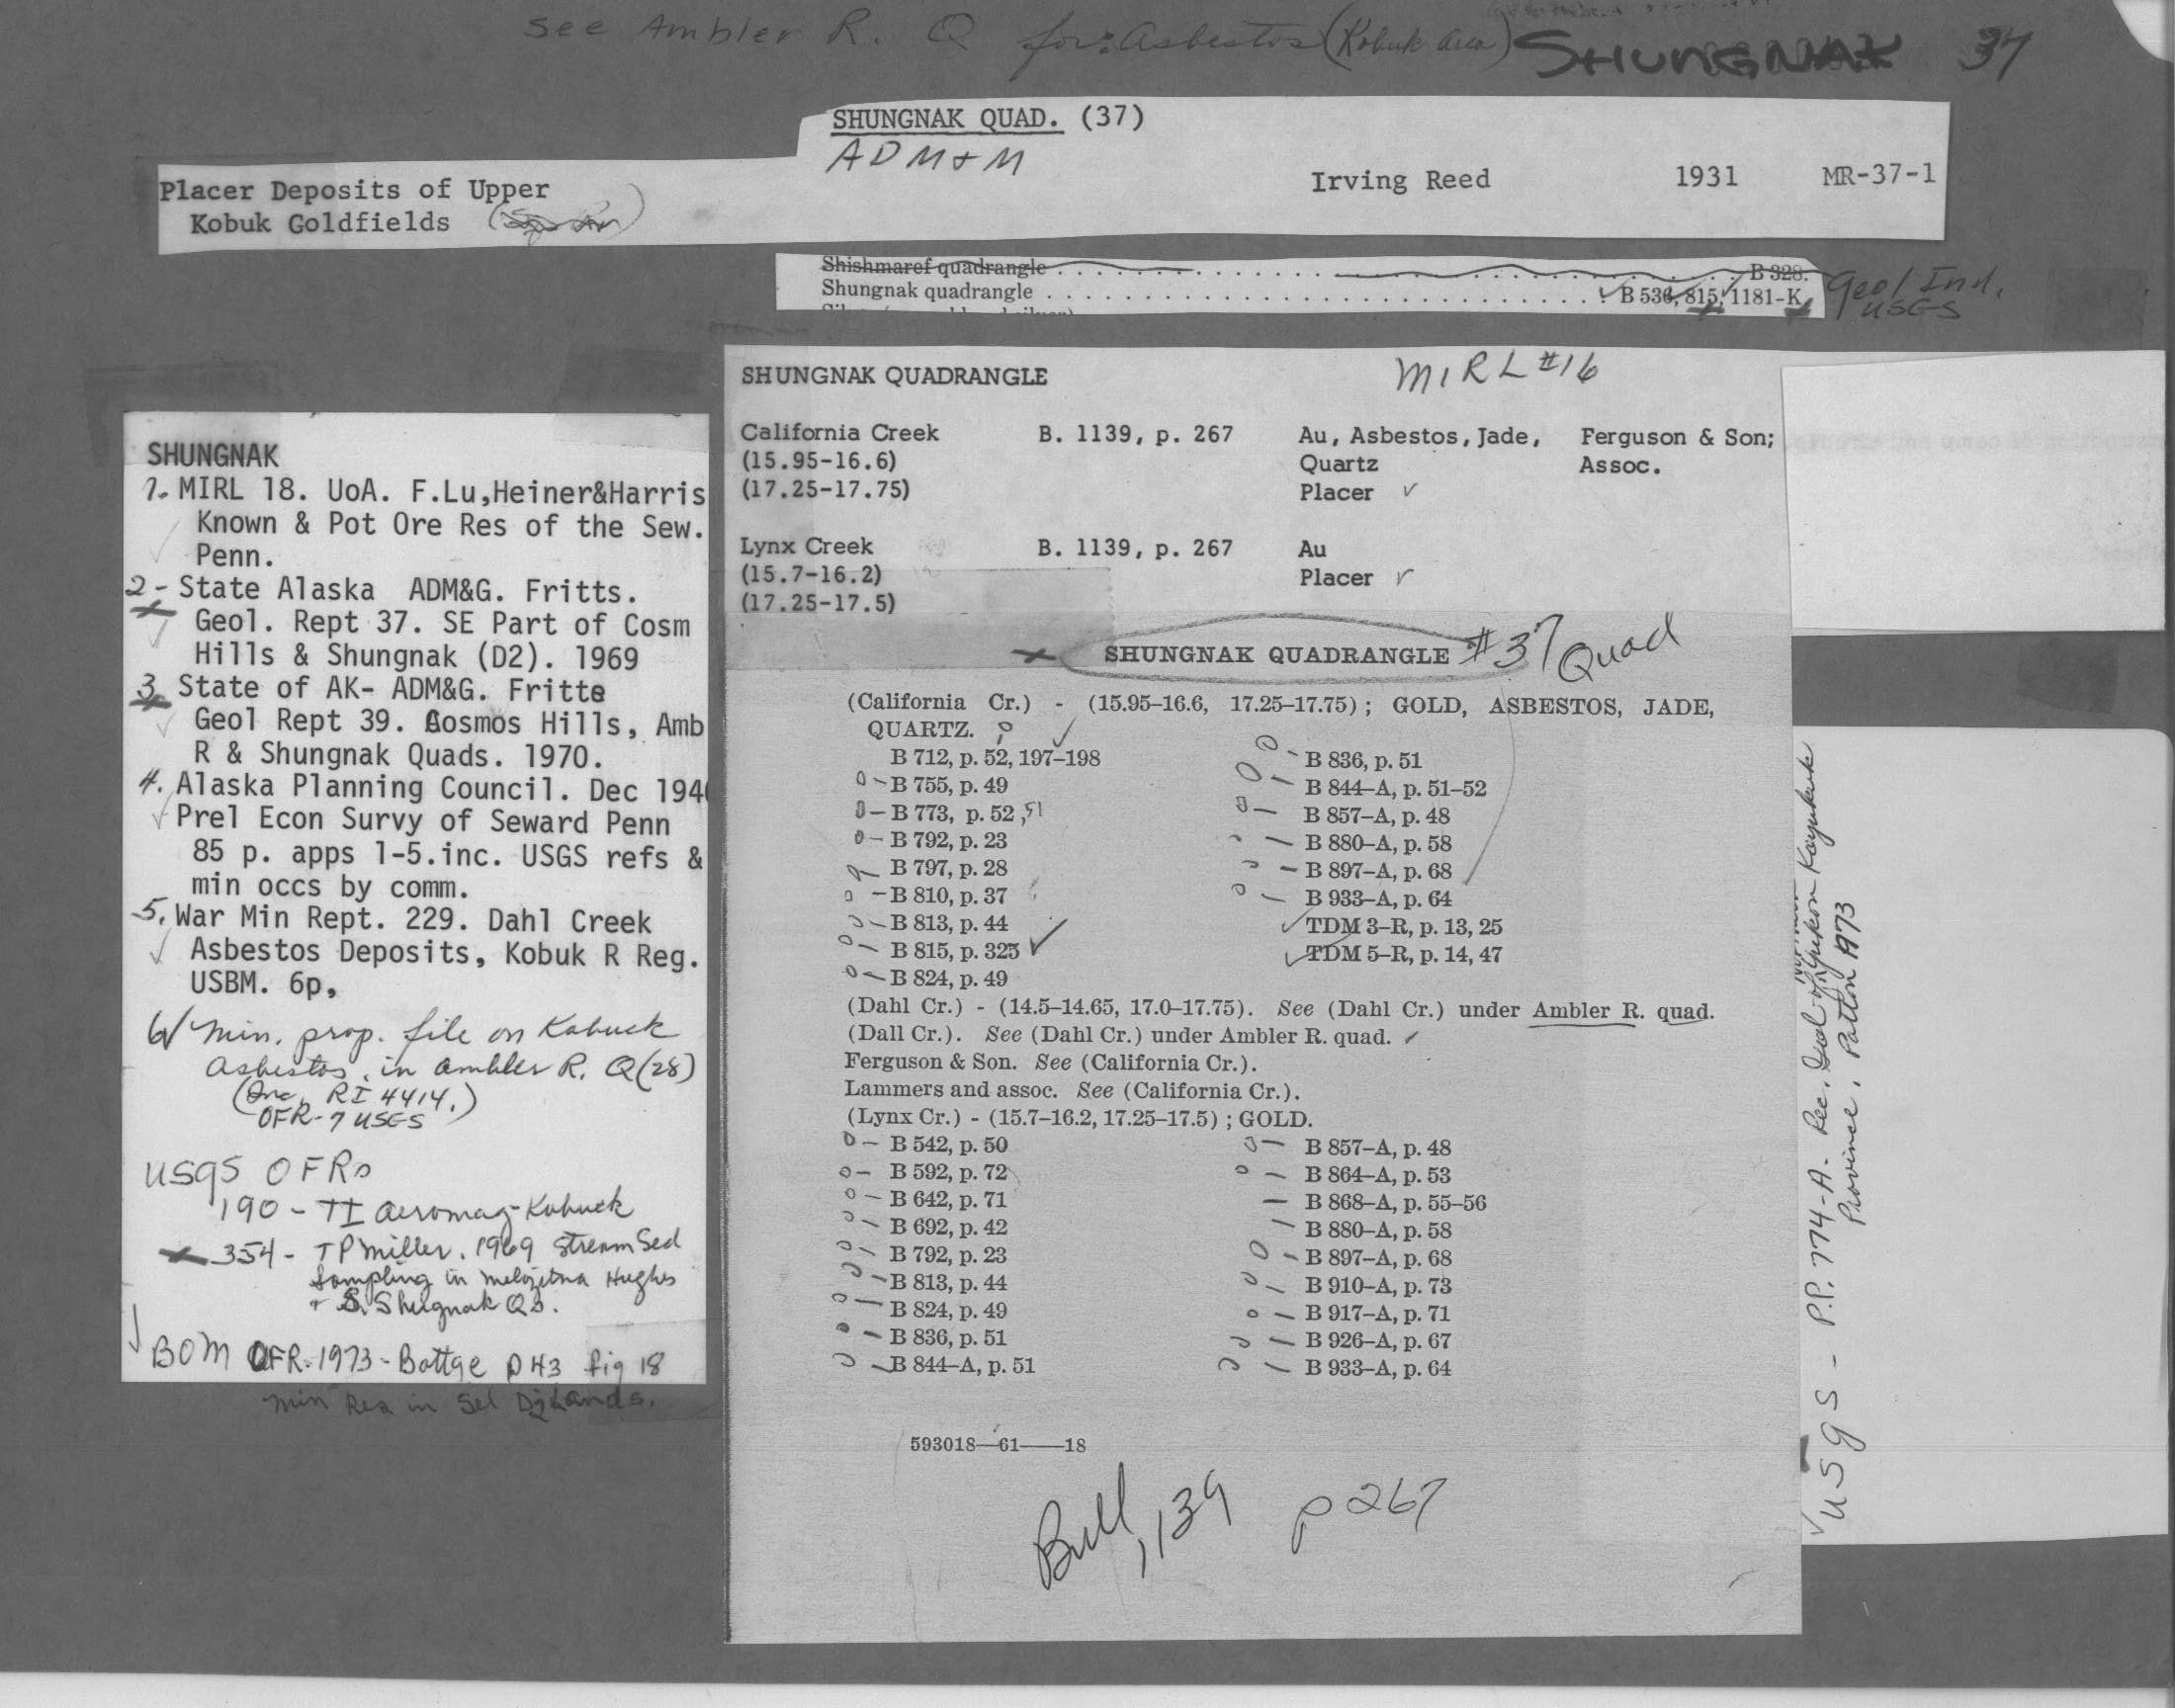 See Ambler R. Q for: Asbestos (Kobuk Area) SHUNGNAK 37
SHUNGNAK QUAD. (37)
ADM+M
Placer Deposits of Upper
Kobuk Goldfields
Irving Reed 1931 MR-37-1
Shishmaref quadrangle . . . . . . . . . . B 328.
Shungnak quadrangle . . . . . . . . . . B 536, 815, 1181-K
Geol Ind.
USGS
SHUNGNAK
1. MIRL 18. UoA. F.Lu,Heiner&Harris
Known & Pot Ore Res of the Sew.
Penn.
2- State Alaska ADM&G. Fritts.
Geol. Rept 37. SE Part of Cosm
Hills & Shungnak (D2). 1969
3. State of AK- ADM&G. Fritte
Geol Rept 39. Cosmos Hills, Amb
R & Shungnak Quads. 1970.
4. Alaska Planning Council. Dec 194
Prel Econ Survy of Seward Penn
85 p. apps 1-5.inc. USGS refs &
min occs by comm.
5. War Min Rept. 229. Dahl Creek
Asbestos Deposits, Kobuk R Reg.
USBM. 6p,
6 Min. prop. file on Kobuck
Asbestos in Ambler R. Q (28)
(Inc. RI 4414.)
OFR-7 USGS
USGS OFRs
190 - TI aeromag-Kobuck
354 - TP Miller. 1969 Stream Sed
Sampling in Melozitna Hughes
+ S. Shugnak Qs.
BOM OFR-1973 - Bottge p 43 fig 18
Min Res in Sel D2 Lands.
SHUNGNAK QUADRANGLE MIRL #16
California Creek B. 1139, p. 267 Au, Asbestos, Jade, Ferguson & Son;
(15.95-16.6) Quartz Assoc.
(17.25-17.75) Placer
Lynx Creek B. 1139, p. 267 Au
(15.7-16.2) Placer
(17.25-17.5)
SHUNGNAK QUADRANGLE #37 Quad
(California Cr.) - (15.95–16.6, 17.25–17.75) ; GOLD, ASBESTOS, JADE,
QUARTZ.
B 712, p. 52, 197–198
B 755, p. 49
B 773, p. 52, 51
B 792, p. 23
B 797, p. 28
B 810, p. 37
B 813, p. 44
B 815, p. 325
B 824, p. 49
B 836, p. 51
B 844–A, p. 51–52
B 857–A, p. 48
B 880–A, p. 58
B 897–A, p. 68
B 933–A, p. 64
TDM 3–R, p. 13, 25
TDM 5–R, p. 14, 47
(Dahl Cr.) - (14.5–14.65, 17.0–17.75). See (Dahl Cr.) under Ambler R. quad.
(Dall Cr.). See (Dahl Cr.) under Ambler R. quad.
Ferguson & Son. See (California Cr.).
Lammers and assoc. See (California Cr.).
(Lynx Cr.) - (15.7–16.2, 17.25–17.5) ; GOLD.
B 542, p. 50
B 592, p. 72
B 642, p. 71
B 692, p. 42
B 792, p. 23
B 813, p. 44
B 824, p. 49
B 836, p. 51
B 844–A, p. 51
B 857–A, p. 48
B 864–A, p. 53
B 868–A, p. 55–56
B 880–A, p. 58
B 897–A, p. 68
B 910–A, p. 73
B 917–A, p. 71
B 926–A, p. 67
B 933–A, p. 64
593018—61——18
Bull 1139 p 267
USGS - P.P. 774-A. Rec. Geol of Yukon Koyukuk
Province. Patton 1973